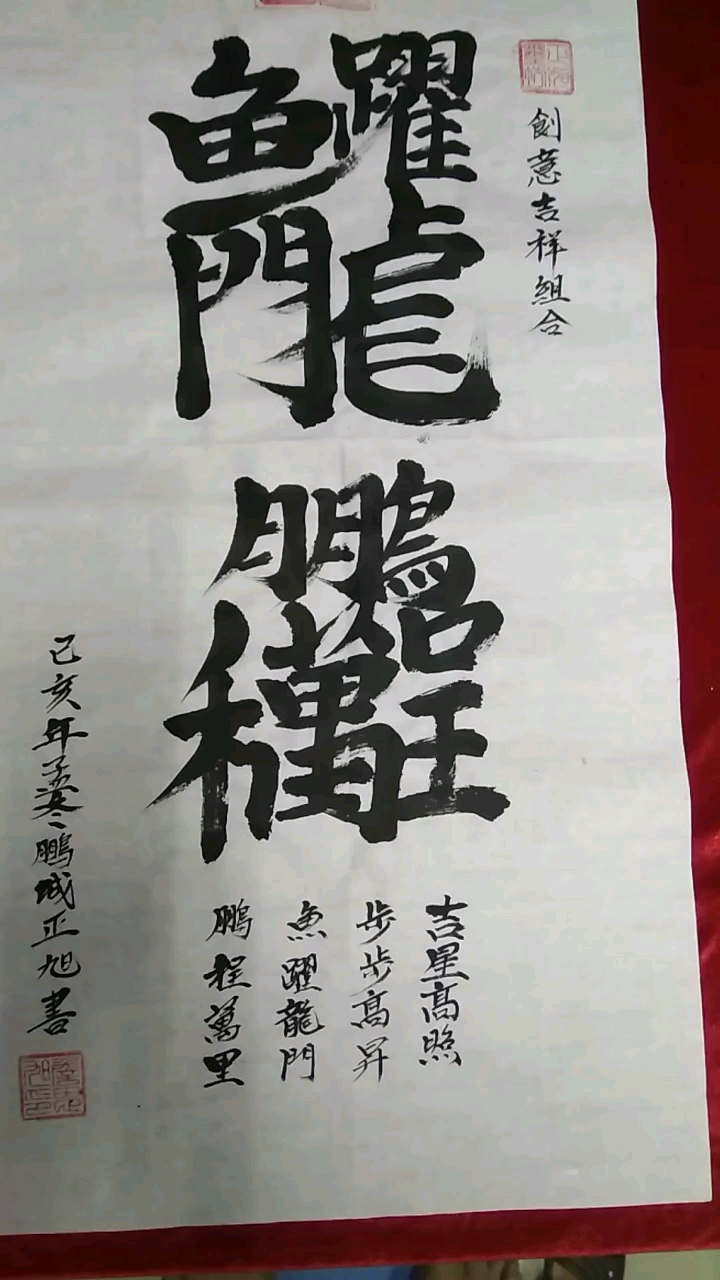 創意吉祥組合
魚躍龍門
鵬程萬里
吉星高照
步步高昇
魚躍龍門
鵬程萬里
己亥年孟寒鵬城正旭書